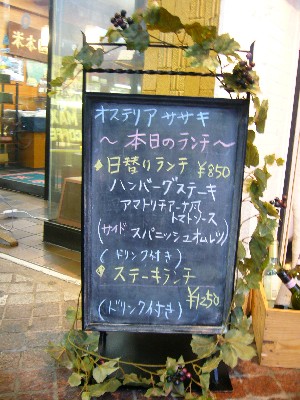 オステリア ササキ
～本日のランチ～
日替りランチ ¥850
ハンバーグステーキ
アマトリチアーナ風
トマトソース
(サイド スパニッシュオムレツ)
(ドリンク付き)
ステーキランチ
¥1250
(ドリンク付き)